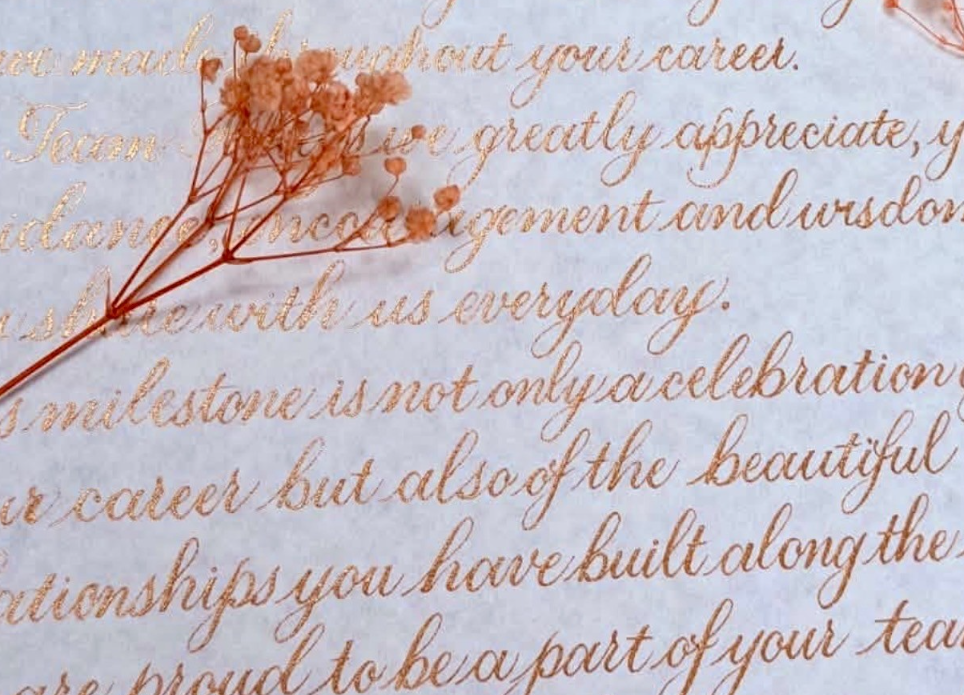 made throughout your career.
Team we greatly appreciate, y
idance, encouragement and wisdom
u share with us everyday.
s milestone is not only a celebration
ur career but also of the beautiful
ationships you have built along the
are proud to be a part of your tea